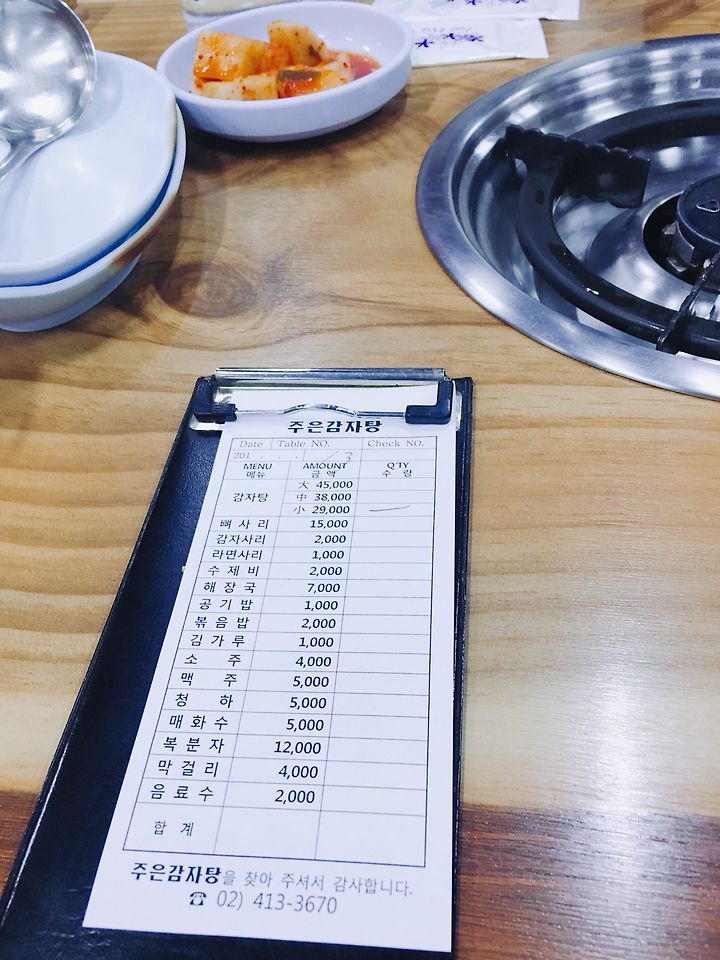 주은감자탕
Date Table NO. Check NO.
201 . . . 3
MENU AMOUNT Q'TY
메뉴 금 액 수 량
大 45,000
감자탕 中 38,000
小 29,000
뼈 사 리 15,000
감자사리 2,000
라면사리 1,000
수 제 비 2,000
해 장 국 7,000
공 기 밥 1,000
볶 음 밥 2,000
김 가 루 1,000
소 주 4,000
맥 주 5,000
청 하 5,000
매 화 수 5,000
복 분 자 12,000
막 걸 리 4,000
음 료 수 2,000
합 계
주은감자탕을 찾아 주셔서 감사합니다.
☎ 02) 413-3670